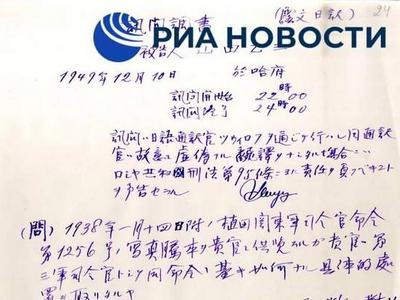 訊問調書 (露文日訳) 24
РИА НОВОСТИ
被告人 山田乙三
1949年12月10日 於哈府
訊問開始 22時00
訊問終了 24時00
訊問ハ日語通訳官ツヴイロフヲ通ジテ行ハレ同通訳
官ハ故意ニ虚偽ナル飜譯ヲナシタル場合ニハ
ロシヤ共和國刑法第95條ニヨリ責任ヲ負フベキコト
ヲ予告セラル
(問) 1938年一月十四日附,植田関東軍司令官命令
第1256号,写真謄本ヲ貴官ニ供覧スルガ貴官ハ第
三軍司令官トシテ同命令ニ基キ如何ナル具体的処
置ヲ取リタルヤ